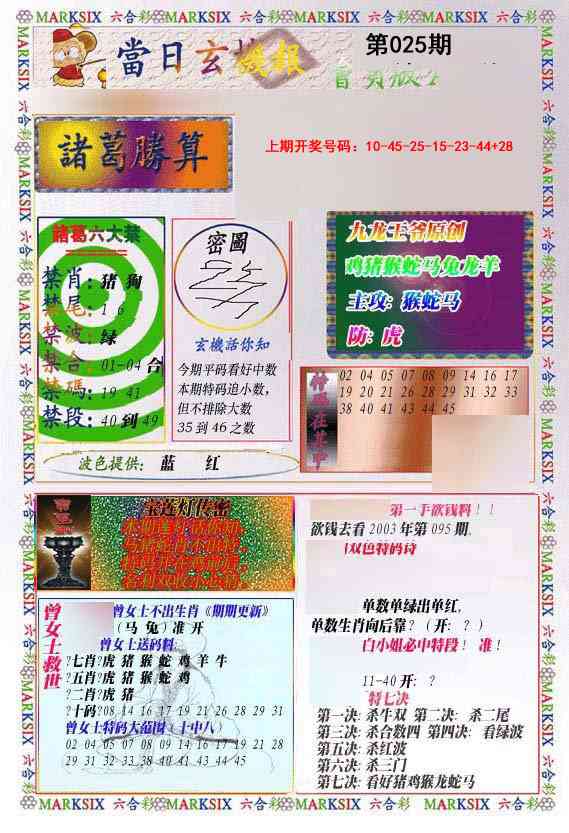 MARKSIX 六合彩MARKSIX 六合彩MARKSIX 六合彩MARKSIX 六合彩MARKSIX
當日玄機报
第025期
諸葛勝算
上期开奖号码：10-45-25-15-23-44+28
諸葛六大禁
禁肖：猪 狗
禁尾：1 6
禁波：绿
禁合：01-04 合
禁碼：19 41
禁段：40 到 49
密圖
玄機話你知
今期平码看好中数
本期特码追小数，
但不排除大数
35 到 46 之数
九龙王爷原创
鸡猪猴蛇马兔龙羊
主攻：猴蛇马
防：虎
特码在其中
02 04 05 07 08 09 14 16 17
19 20 21 26 28 29 31 32 33
38 40 41 43 44 45
波色提供： 蓝 红
宝莲灯传密
第一手欲钱料！！
欲钱去看 2003 年第 095 期.
双色特码诗
单数单绿出单红,
单数生肖向后靠？（开：？）
白小姐必中特段！ 准！
11-40 开：？
特七决
第一决: 杀牛双 第二决: 杀二尾
第三决: 杀合数四 第四决: 看绿波
第五决: 杀红波
第六决: 杀三门
第七决: 看好猪鸡猴龙蛇马
曾女士救世
曾女士不出生肖《期期更新》
（马 兔）准 开
曾女士送码料:
?七肖?虎 猪 猴 蛇 鸡 羊 牛
?五肖?虎 猪 猴 蛇 鸡
?二肖?虎 猪
?十码?08 14 16 17 19 21 26 28 29 31
曾女士特码大范围（十中八）
02 04 05 07 08 09 14 16 17 19 21 28
29 31 32 33 38 40 41 43 44 45
MARKSIX 六合彩MARKSIX 六合彩MARKSIX 六合彩MARKSIX 六合彩MARKSIX